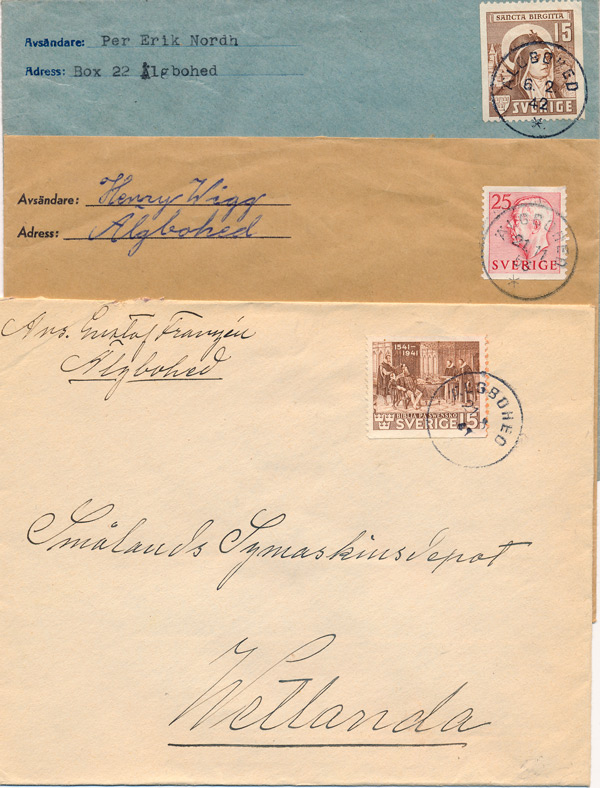 SANCTA BIRGITTA
15
SVERIGE
ÄLGBOHED
6. 2
42
Avsändare: Per Erik Nordh
Adress: Box 22 Älgbohed
Avsändare: Henry Wigg
Adress: Älgbohed
25
SVERIGE
ÄLGBOHED
Avs. Gustaf Franzén
Älgbohed
1541-
1941
BIBLIA PÅ SWENSKO
SVERIGE 15
ÄLGBOHED
Smålands Symaskinsdepot
Wetlanda